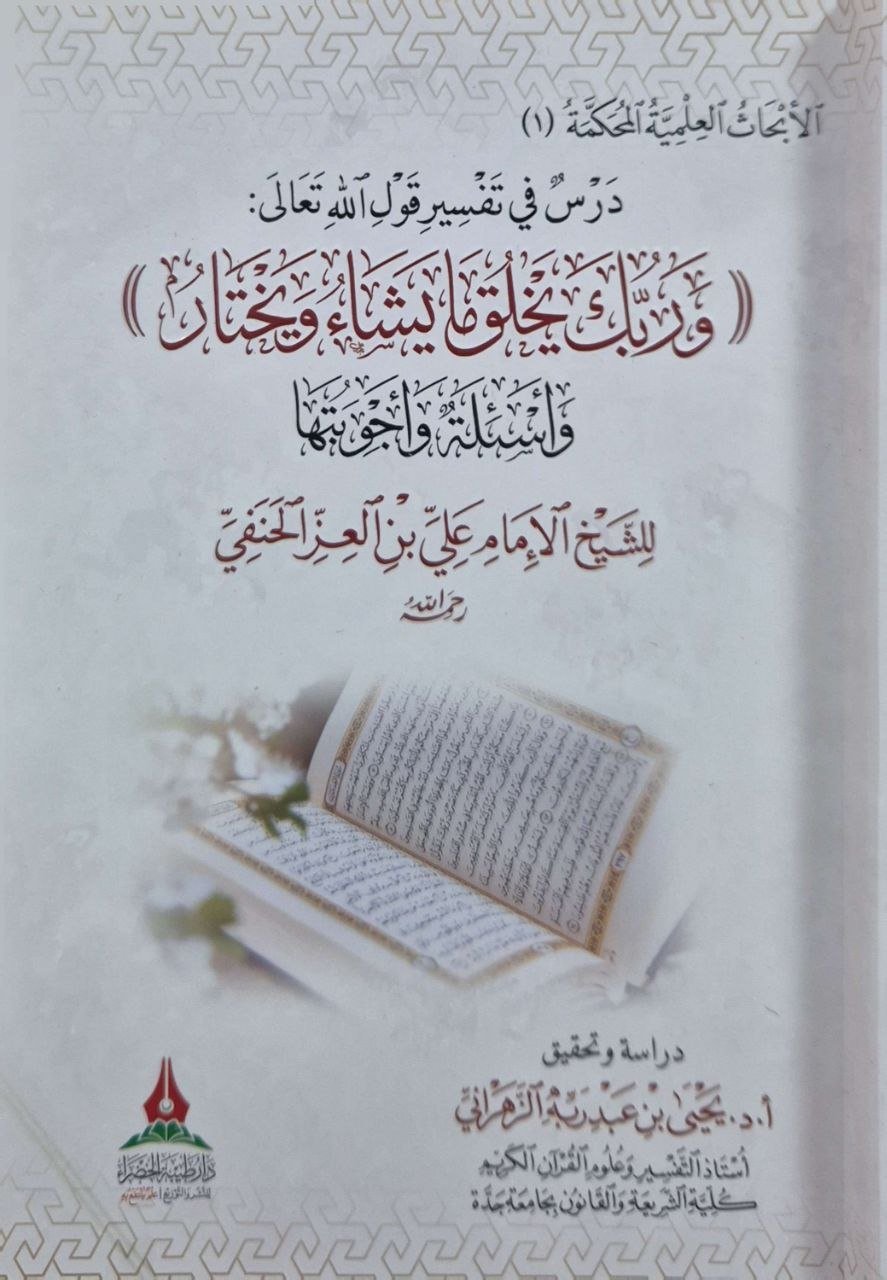 الأَبْحَاثُ العِلْمِيَّةُ المُحَكَّمَةُ (١)
دَرْسٌ فِي تَفْسِيرِ قَوْلِ اللهِ تَعَالَى:
﴿ وَرَبُّكَ يَخْلُقُ مَا يَشَاءُ وَيَخْتَارُ ﴾
وَأَسْئِلَةٌ وَأَجْوِبَتُهَا
لِلشَّيْخِ الإِمَامِ عَلِيِّ بْنِ العِزِّ الحَنَفِيِّ
رحمه الله
دراسة وتحقيق
أ.د. يَحْيَى بْنِ عَبْدِ رَبِّهِ الزَّهْرَانِيّ
أُسْتَاذُ التَّفْسِيرِ وَعُلُومِ القُرْآنِ الكَرِيمِ
كُلِّيَّةِ الشَّرِيعَةِ وَالقَانُونِ بِجَامِعَةِ جَدَّة
دَارُ طَيْبَةَ الخَضْرَاء
للنشر والتوزيع | علم ينتفع به